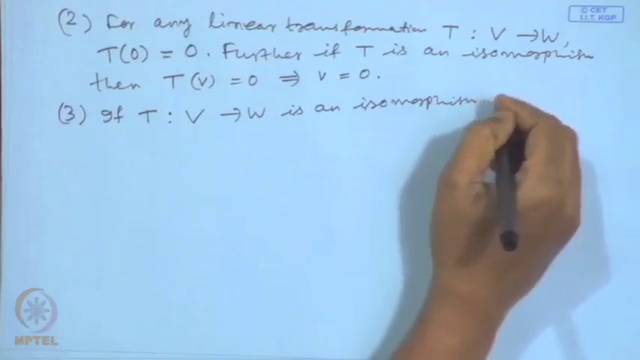 © CET
I.I.T. KGP
(2) For any linear transformation T : V → W,
T(0) = 0. Further if T is an isomorphism
then T(v) = 0 ⇒ v = 0.
(3) If T : V → W is an isomorphism
NPTEL